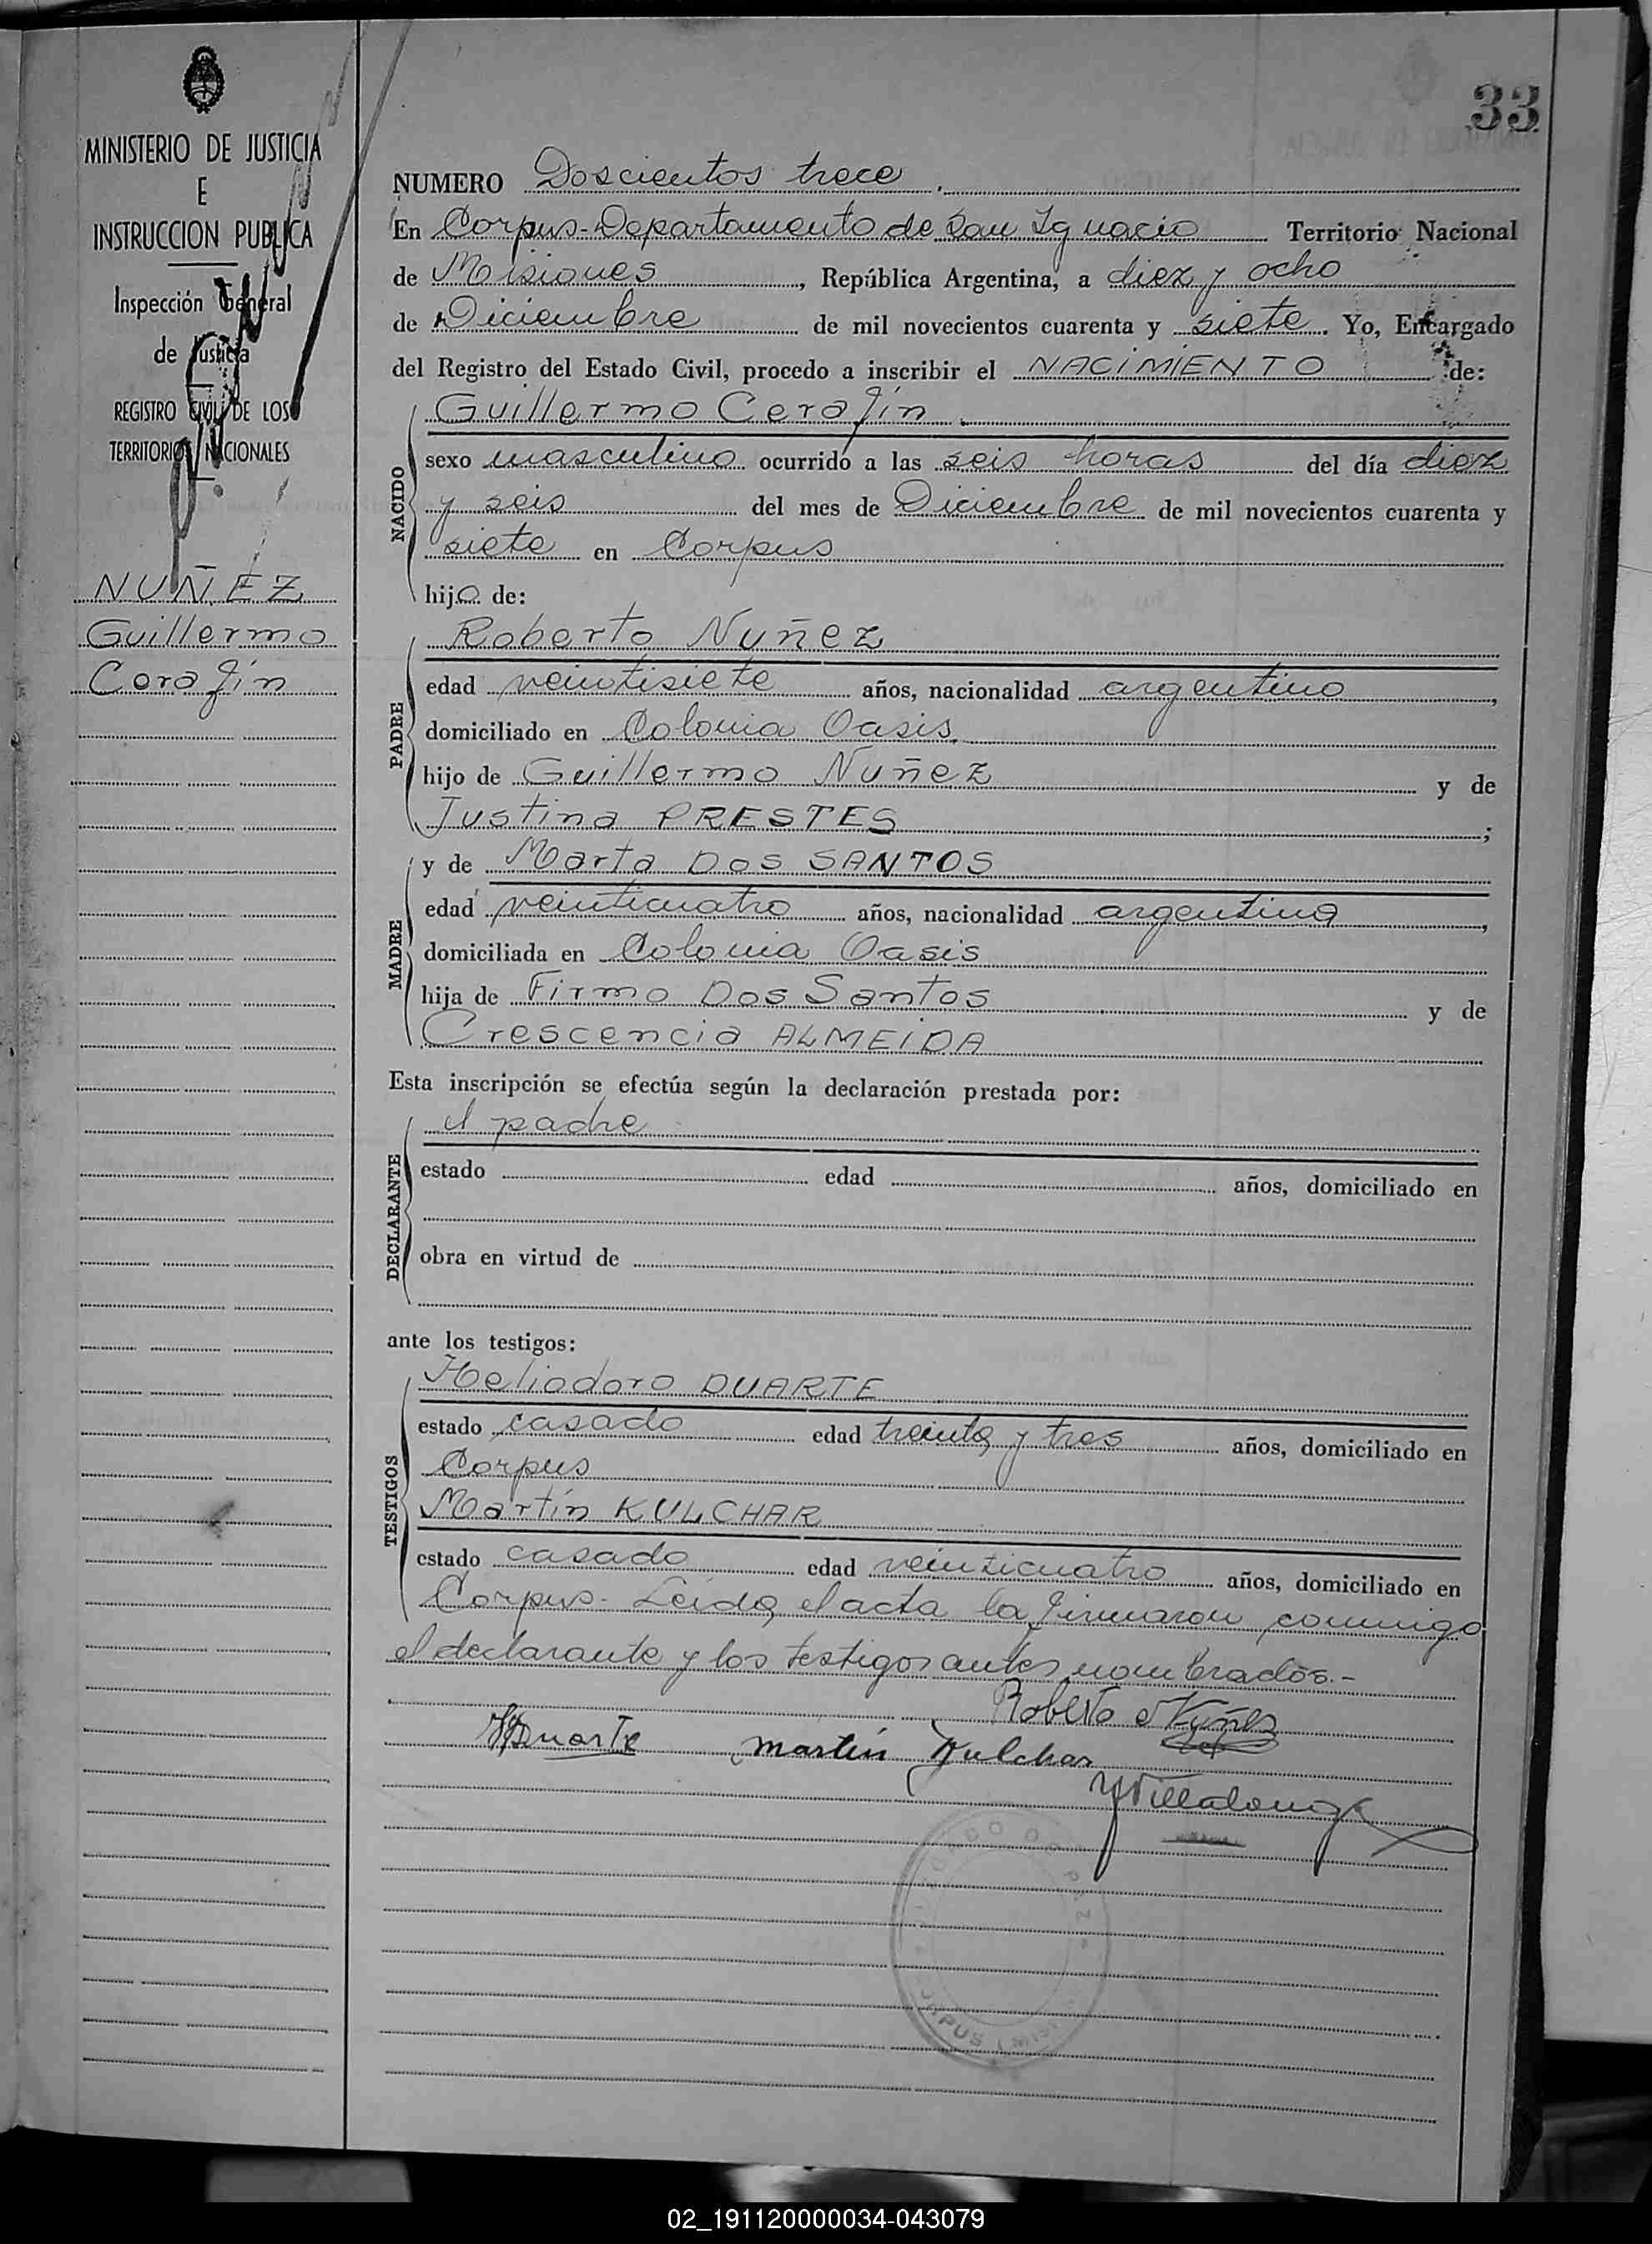 33
MINISTERIO DE JUSTICIA
E
INSTRUCCION PUBLICA
Inspección General
de Justicia
REGISTRO CIVIL DE LOS
TERRITORIOS NACIONALES
NUÑEZ
Guillermo
Cerafin
NUMERO Doscientos trece.
En Corpus-Departamento de San Ignacio Territorio Nacional
de Misiones, República Argentina, a diez y ocho
de Diciembre de mil novecientos cuarenta y siete. Yo, Encargado
del Registro del Estado Civil, procedo a inscribir el NACIMIENTO de:
NACIDO
Guillermo Cerafin.
sexo masculino ocurrido a las seis horas del día diez
y seis del mes de Diciembre de mil novecientos cuarenta y
siete en Corpus
hijo de:
PADRE
Roberto Nuñez
edad veintisiete años, nacionalidad argentino,
domiciliado en Colonia Oasis.
hijo de Guillermo Nuñez y de
Justina PRESTES;
MADRE
y de Marta DOS SANTOS
edad veinticuatro años, nacionalidad argentina,
domiciliada en Colonia Oasis
hija de Firmo Dos Santos y de
Crescencia ALMEIDA
Esta inscripción se efectúa según la declaración prestada por:
DECLARANTE
el padre
estado edad años, domiciliado en
obra en virtud de
ante los testigos:
TESTIGOS
Heliodoro DUARTE
estado casado edad treinta y tres años, domiciliado en
Corpus
Martín KULCHAR
estado casado edad veinticuatro años, domiciliado en
Corpus- Leída el acta la firmaron conmigo
el declarante y los testigos antes nombrados.-
Roberto Nuñez
HDuarte martín Kulchar
Villalonga
02_191120000034-043079